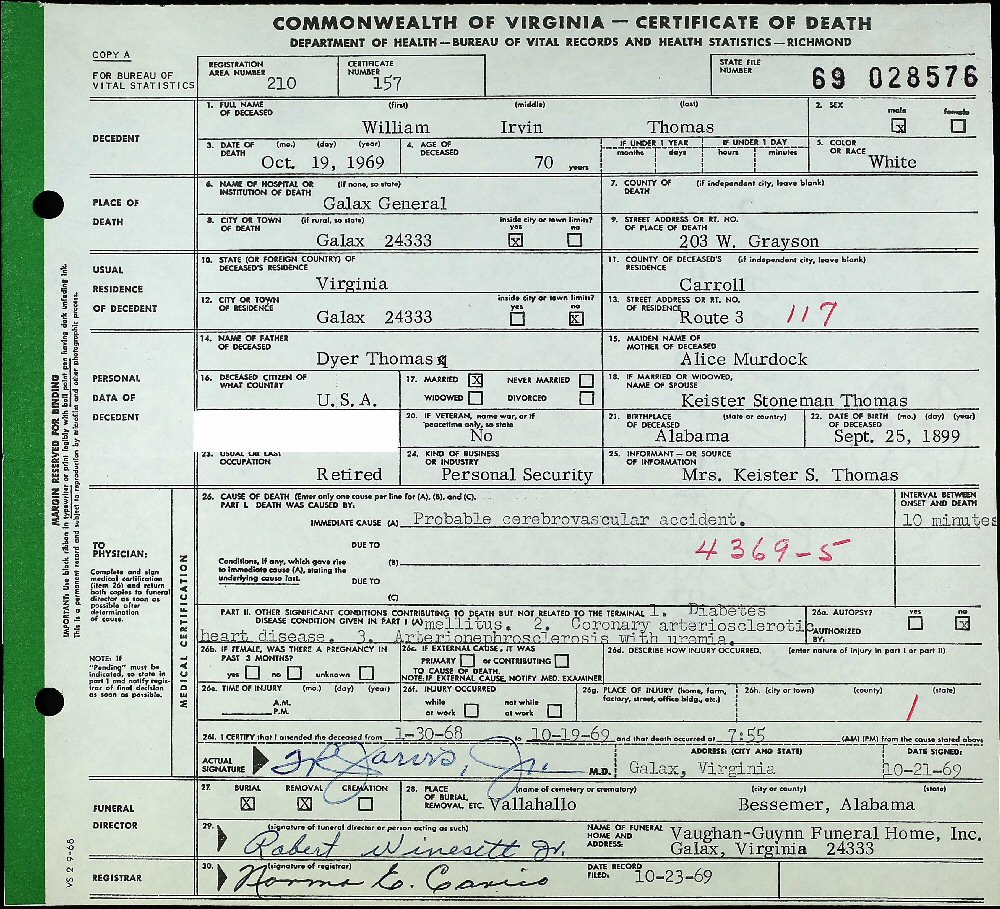 COMMONWEALTH OF VIRGINIA — CERTIFICATE OF DEATH
DEPARTMENT OF HEALTH — BUREAU OF VITAL RECORDS AND HEALTH STATISTICS — RICHMOND
COPY A
FOR BUREAU OF VITAL STATISTICS
REGISTRATION AREA NUMBER 210
CERTIFICATE NUMBER 157
STATE FILE NUMBER 69 028576
DECEDENT
1. FULL NAME OF DECEASED (first) (middle) (last)
William Irvin Thomas
2. SEX male x female
3. DATE OF DEATH (mo.) (day) (year)
Oct. 19, 1969
4. AGE OF DECEASED 70 years
IF UNDER 1 YEAR months days
IF UNDER 1 DAY hours minutes
5. COLOR OR RACE White
PLACE OF DEATH
6. NAME OF HOSPITAL OR INSTITUTION OF DEATH (If none, so state)
Galax General
7. COUNTY OF DEATH (if independent city, leave blank)
8. CITY OR TOWN OF DEATH (if rural, so state)
Galax 24333
inside city or town limits? yes x no
9. STREET ADDRESS OR RT. NO. OF PLACE OF DEATH
203 W. Grayson
USUAL RESIDENCE OF DECEDENT
10. STATE (OR FOREIGN COUNTRY) OF DECEASED'S RESIDENCE
Virginia
11. COUNTY OF DECEASED'S RESIDENCE (if independent city, leave blank)
Carroll
12. CITY OR TOWN OF RESIDENCE
Galax 24333
inside city or town limits? yes no x
13. STREET ADDRESS OR RT. NO. OF RESIDENCE
Route 3 117
PERSONAL DATA OF DECEDENT
14. NAME OF FATHER OF DECEASED
Dyer Thomas
15. MAIDEN NAME OF MOTHER OF DECEASED
Alice Murdock
16. DECEASED CITIZEN OF WHAT COUNTRY
U. S. A.
17. MARRIED X NEVER MARRIED
WIDOWED DIVORCED
18. IF MARRIED OR WIDOWED, NAME OF SPOUSE
Keister Stoneman Thomas
20. IF VETERAN, name war, or if peacetime only, so state
No
21. BIRTHPLACE OF DECEASED (state or country)
Alabama
22. DATE OF BIRTH OF DECEASED (mo.) (day) (year)
Sept. 25, 1899
23. USUAL OR LAST OCCUPATION
Retired
24. KIND OF BUSINESS OR INDUSTRY
Personal Security
25. INFORMANT — OR SOURCE OF INFORMATION
Mrs. Keister S. Thomas
MARGIN RESERVED FOR BINDING
IMPORTANT: Use black ribbon in typewriter or print legibly with ball point pen having dark unfading ink.
This is a permanent record and subject to reproduction by microfilm and other photographic process.
TO PHYSICIAN:
Complete and sign medical certification (item 26) and return both copies to funeral director as soon as possible after determination of cause.
NOTE: If "Pending" must be indicated, so state in part 1 and notify registrar of final decision as soon as possible.
MEDICAL CERTIFICATION
26. CAUSE OF DEATH (Enter only one cause per line for (A), (B), and (C).
PART I. DEATH WAS CAUSED BY:
INTERVAL BETWEEN ONSET AND DEATH
IMMEDIATE CAUSE (A) Probable cerebrovascular accident. 10 minutes
DUE TO 4369-5
Conditions, if any, which gave rise to immediate cause (A), stating the underlying cause last. (B)
DUE TO
(C)
PART II. OTHER SIGNIFICANT CONDITIONS CONTRIBUTING TO DEATH BUT NOT RELATED TO THE TERMINAL DISEASE CONDITION GIVEN IN PART I (A)
1. Diabetes
mellitus. 2. Coronary arteriosclerotic
heart disease. 3. Arterionephrosclerosis with uremia.
26a. AUTOPSY? yes no x
AUTHORIZED BY:
26b. IF FEMALE, WAS THERE A PREGNANCY IN PAST 3 MONTHS?
yes no unknown
26c. IF EXTERNAL CAUSE, IT WAS
PRIMARY or CONTRIBUTING
TO CAUSE OF DEATH.
NOTE: IF EXTERNAL CAUSE, NOTIFY MED. EXAMINER
26d. DESCRIBE HOW INJURY OCCURRED. (enter nature of injury in part I or part II)
26e. TIME OF INJURY (mo.) (day) (year)
A.M.
P.M.
26f. INJURY OCCURRED
while at work not while at work
26g. PLACE OF INJURY (home, farm, factory, street, office bldg., etc.)
26h. (city or town) (county) (state)
26i. I CERTIFY that I attended the deceased from 1-30-68 to 10-19-69 and that death occurred at 7:55 (AM) (PM) from the cause stated above
ACTUAL SIGNATURE Jarvis, Jr. M.D.
ADDRESS: (CITY AND STATE)
Galax, Virginia
DATE SIGNED:
10-21-69
FUNERAL DIRECTOR
27. BURIAL X REMOVAL X CREMATION
28. PLACE OF BURIAL, REMOVAL, ETC. (name of cemetery or crematory) (city or county) (state)
Vallahallo Bessemer, Alabama
29. (signature of funeral director or person acting as such)
Robert Winesett Jr.
NAME OF FUNERAL HOME AND ADDRESS:
Vaughan-Guynn Funeral Home, Inc.
Galax, Virginia 24333
REGISTRAR
30. (signature of registrar)
Norma E. Carico
DATE RECORD FILED: 10-23-69
VS. 2 9-68